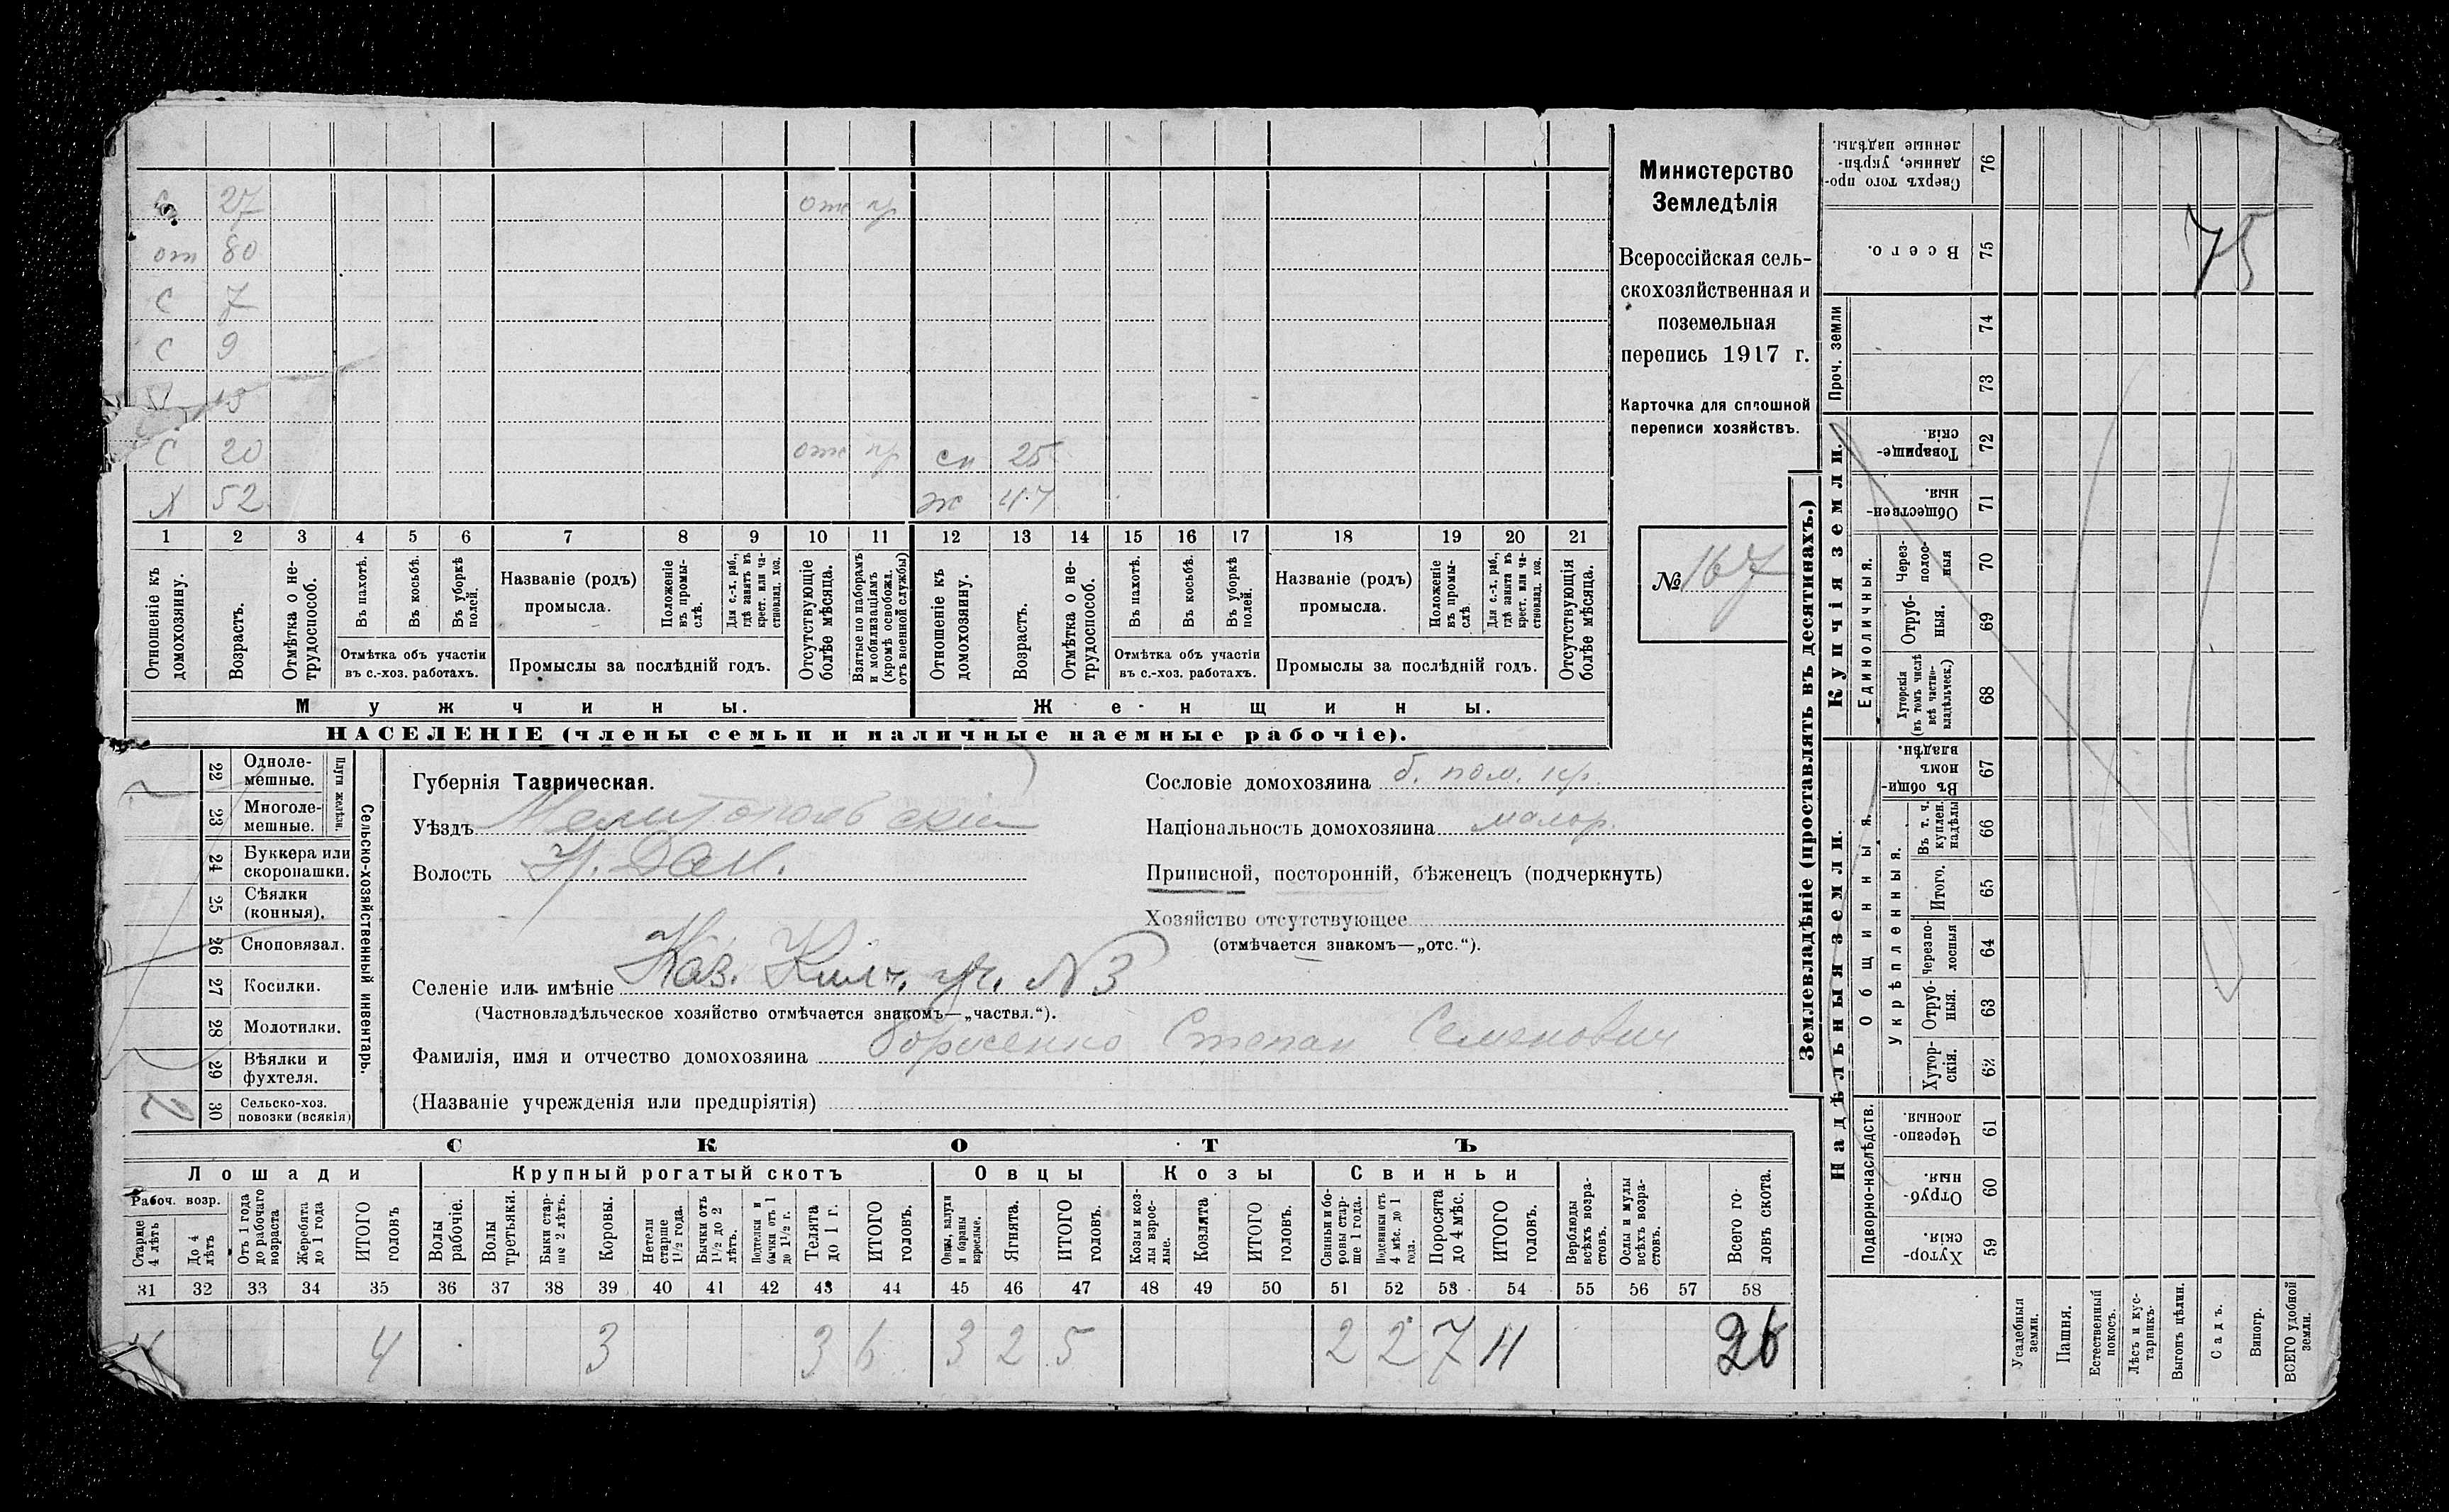 27 отс пр
от 80
С 7
С 9
13
С 20 отс пр сн 25
Х 52 ж 47
1 2 3 4 5 6 7 8 9 10 11 12 13 14 15 16 17 18 19 20 21
Отношеніе къ домохозяину.
Возрастъ.
Отмѣтка о не-трудоспособ.
Въ пахотѣ.
Въ косьбѣ.
Въ уборкѣ полей.
Отмѣтка объ участіи
въ с.-хоз. работахъ.
Названіе (родъ)
промысла.
Положеніе въ промы-слѣ.
Для с.-х. раб., гдѣ занятъ въ крест. или ча-стновлад. хоз.
Промыслы за послѣдній годъ.
Отсутствующіе болѣе мѣсяца.
Взятые по наборамъ и мобилизаціямъ (кромѣ освобожд. отъ военной службы)
Отношеніе къ домохозяину.
Возрастъ.
Отмѣтка о не-трудоспособ.
Въ пахотѣ.
Въ косьбѣ.
Въ уборкѣ полей.
Отмѣтка объ участіи
въ с.-хоз. работахъ.
Названіе (родъ)
промысла.
Положеніе въ промы-слѣ.
Для с.-х. раб., гдѣ занята въ крест. или ча-стновлад. хоз.
Промыслы за послѣдній годъ.
Отсутствующія болѣе мѣсяца.
Мужчины.
Женщины.
НАСЕЛЕНІЕ (члены семьи и наличные наемные рабочіе).
Министерство
Земледѣлія
Всероссійская сель-
скохозяйственная и
поземельная
перепись 1917 г.
Карточка для сплошной
переписи хозяйствъ.
№ 167
22 Одноле-мешные.
23 Многоле-мешные.
Плуги желѣзн.
24 Буккера или скоропашки.
25 Сѣялки (конныя).
26 Сноповязал.
27 Косилки.
28 Молотилки.
29 Вѣялки и фухтеля.
2 30 Сельско-хоз. повозки (всякія)
Сельско-хозяйственный инвентарь.
Губернія Таврическая.
Уѣздъ Мелитопольскій
Волость Н. Дан.
Селеніе или имѣніе Каз. Килч. уч. N 3
(Частновладѣльческое хозяйство отмѣчается знакомъ—„частвл.“).
Фамилія, имя и отчество домохозяина Борисенко Степан Семенович
(Названіе учрежденія или предпріятія)
Сословіе домохозяина б. пом. кр.
Національность домохозяина малор.
Приписной, посторонній, бѣженецъ (подчеркнуть)
Хозяйство отсутствующее
(отмѣчается знакомъ—„отс.“).
СКОТЪ
Лошади
Крупный рогатый скотъ
Овцы
Козы
Свиньи
Рабоч. возр.
Старше 4 лѣтъ
До 4 лѣтъ
Отъ 1 года до рабочаго возраста
Жеребята до 1 года
ИТОГО головъ
Волы рабочіе.
Волы третьяки.
Быки стар-ше 2 лѣтъ.
Коровы.
Нетели старше 1½ года.
Бычки отъ 1½ до 2 лѣтъ.
Подтелки и бычки отъ 1 до 1½ г.
Телята до 1 г.
ИТОГО головъ.
Овцы, валухи и бараны взрослые.
Ягнята.
ИТОГО головъ.
Козы и коз-лы взрос-лые.
Козлята
ИТОГО головъ.
Свиньи и бо-ровы стар-ше 1 года.
Подсвинки отъ 4 мѣс. до 1 года.
Поросята до 4 мѣс.
ИТОГО головъ.
Верблюды всѣхъ возра-стовъ.
Ослы и мулы всѣхъ возра-стовъ.
Всего го-ловъ скота.
31 32 33 34 35 36 37 38 39 40 41 42 43 44 45 46 47 48 49 50 51 52 53 54 55 56 57 58
4 4 3 3 6 3 2 5 2 2 7 11 26
Землевладѣніе (проставлять въ десятинахъ.)
Купчія земли.
Надѣльныя земли.
76 Сверхъ того про-данные, укрѣп-ленные надѣлы.
75 Всего. 75
Проч. земли
74
73
72 Товарище-скія.
71 Обществен-ныя.
Единоличныя.
70 Через-полос-ныя
69 Отруб-ныя.
68 Хуторскія (въ томъ числѣ всѣ частно-владѣльческ.)
67 Въ общи-номъ владѣн.
Общинныя.
Укрѣпленныя.
66 Въ т. ч. куплен. надѣлы
65 Итого.
64 Черезпо-лосныя
63 Отруб-ныя.
62 Хутор-скія.
Подворно-наслѣдств.
61 Черезпо-лосныя
60 Отруб-ныя.
59 Хутор-скія.
Усадебныя земли.
Пашня.
Естественный покосъ.
Лѣсъ и кус-тарникъ.
Выгонъ цѣлин.
Садъ.
Виногр.
ВСЕГО удобной земли.